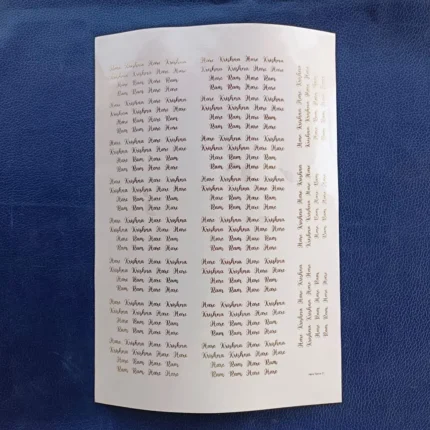 Hare Krishna Hare Krishna
Krishna Krishna Hare Hare
Hare Ram Hare Ram
Ram Ram Hare Hare
Hare Krishna Hare Krishna
Krishna Krishna Hare Hare
Hare Ram Hare Ram
Ram Ram Hare Hare
Hare Krishna Hare Krishna
Krishna Krishna Hare Hare
Hare Ram Hare Ram
Ram Ram Hare Hare
Hare Krishna Hare Krishna
Krishna Krishna Hare Hare
Hare Ram Hare Ram
Ram Ram Hare Hare
Hare Krishna Hare Krishna
Krishna Krishna Hare Hare
Hare Ram Hare Ram
Ram Ram Hare Hare
Hare Krishna Hare Krishna
Krishna Krishna Hare Hare
Hare Ram Hare Ram
Ram Ram Hare Hare
Hare Krishna Hare Krishna
Krishna Krishna Hare Hare
Hare Ram Hare Ram
Ram Ram Hare Hare
Hare Krishna Hare Krishna
Krishna Krishna Hare Hare
Hare Ram Hare Ram
Ram Ram Hare Hare
Hare Krishna Hare Krishna
Krishna Krishna Hare Hare
Hare Ram Hare Ram
Ram Ram Hare Hare
Hare Krishna Hare Krishna
Krishna Krishna Hare Hare
Hare Ram Hare Ram
Ram Ram Hare Hare
Hare Krishna Hare Krishna
Krishna Krishna Hare Hare
Hare Ram Hare Ram
Ram Ram Hare Hare
Hare Krishna Hare Krishna
Krishna Krishna Hare Hare
Hare Ram Hare Ram
Ram Ram Hare Hare
Hare Krishna Hare Krishna
Krishna Krishna Hare Hare
Hare Ram Hare Ram
Ram Ram Hare Hare
Hare Krishna Hare Krishna
Krishna Krishna Hare Hare
Hare Ram Hare Ram
Ram Ram Hare Hare
Hare Krishna Hare Krishna
Krishna Krishna Hare Hare
Hare Ram Hare Ram
Ram Ram Hare Hare
Hare Krishna Hare Krishna
Krishna Krishna Hare Hare
Hare Ram Hare Ram
Ram Ram Hare Hare
Hare Krishna Hare Krishna
Krishna Krishna Hare Hare
Hare Ram Hare Ram
Ram Ram Hare Hare
Hare Krishna Hare Krishna
Krishna Krishna Hare Hare
Hare Ram Hare Ram
Ram Ram Hare Hare
Hare Krishna Hare Krishna
Krishna Krishna Hare Hare
Hare Ram Hare Ram
Ram Ram Hare Hare